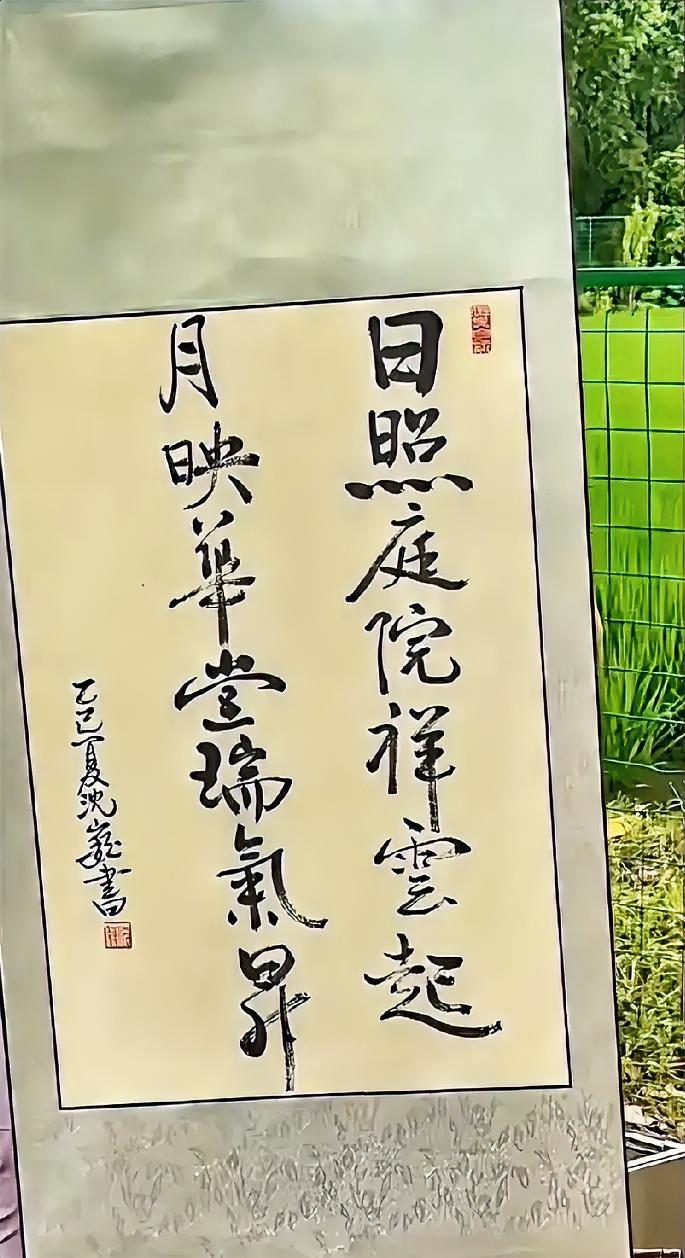 日照庭院祥雲起
月映華堂瑞氣昇
乙巳夏沈巍書